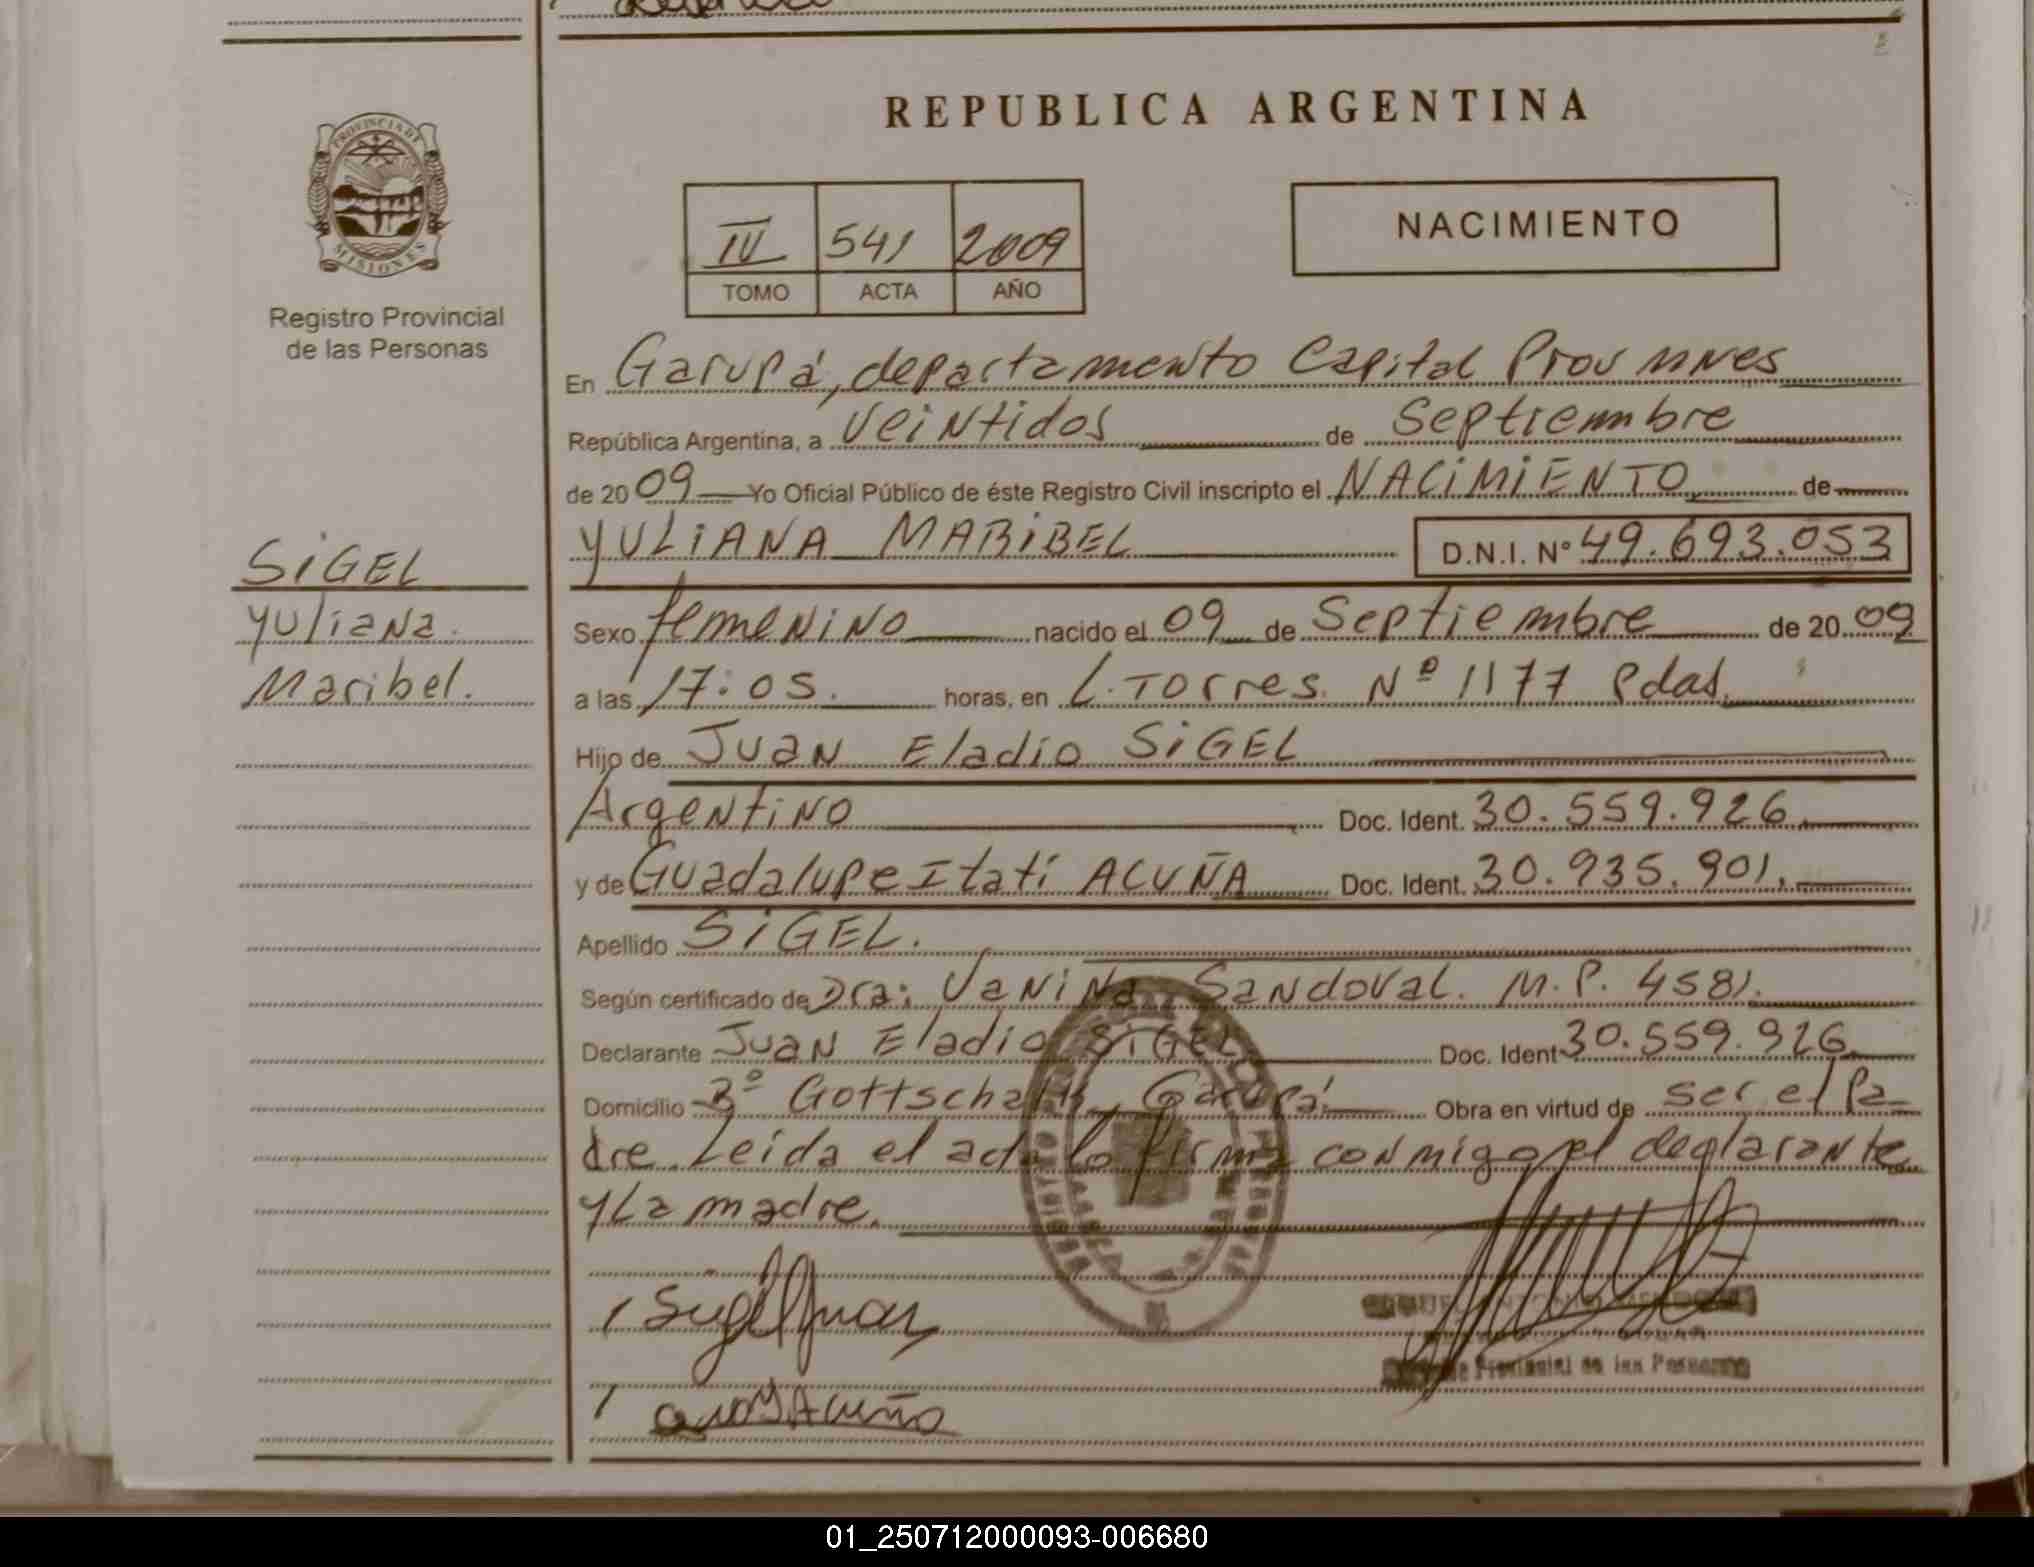 REPUBLICA ARGENTINA
PROVINCIA DE
MISIONES
Registro Provincial
de las Personas
IV 541 2009
TOMO ACTA AÑO
NACIMIENTO
En Garupá, departamento Capital Prov mnes
República Argentina, a veintidos de Septiembre
de 2009 Yo Oficial Público de éste Registro Civil inscripto el NACIMIENTO de
YULIANA MARIBEL D.N.I. Nº 49.693.053
SIGEL
Yuliana
Maribel.
Sexo femenino nacido el 09 de Septiembre de 2009
a las 17:05. horas, en L. Torres. Nº 1177 Pdas.
Hijo de Juan Eladio SIGEL
Argentino Doc. Ident. 30.559.926.
y de Guadalupe Itatí ACUÑA Doc. Ident. 30.935.901.
Apellido SIGEL.
Según certificado de Dra: Vanina Sandoval. M.P. 4581.
Declarante Juan Eladio SIGEL Doc. Ident 30.559.926.
Domicilio Bº Gottschalk, Garupá Obra en virtud de ser el Pa
dre. Leida el acta lo firma conmigo el declarante
y La madre.
Sigel Juan
Acuña
Provincial de las Personas
01_250712000093-006680